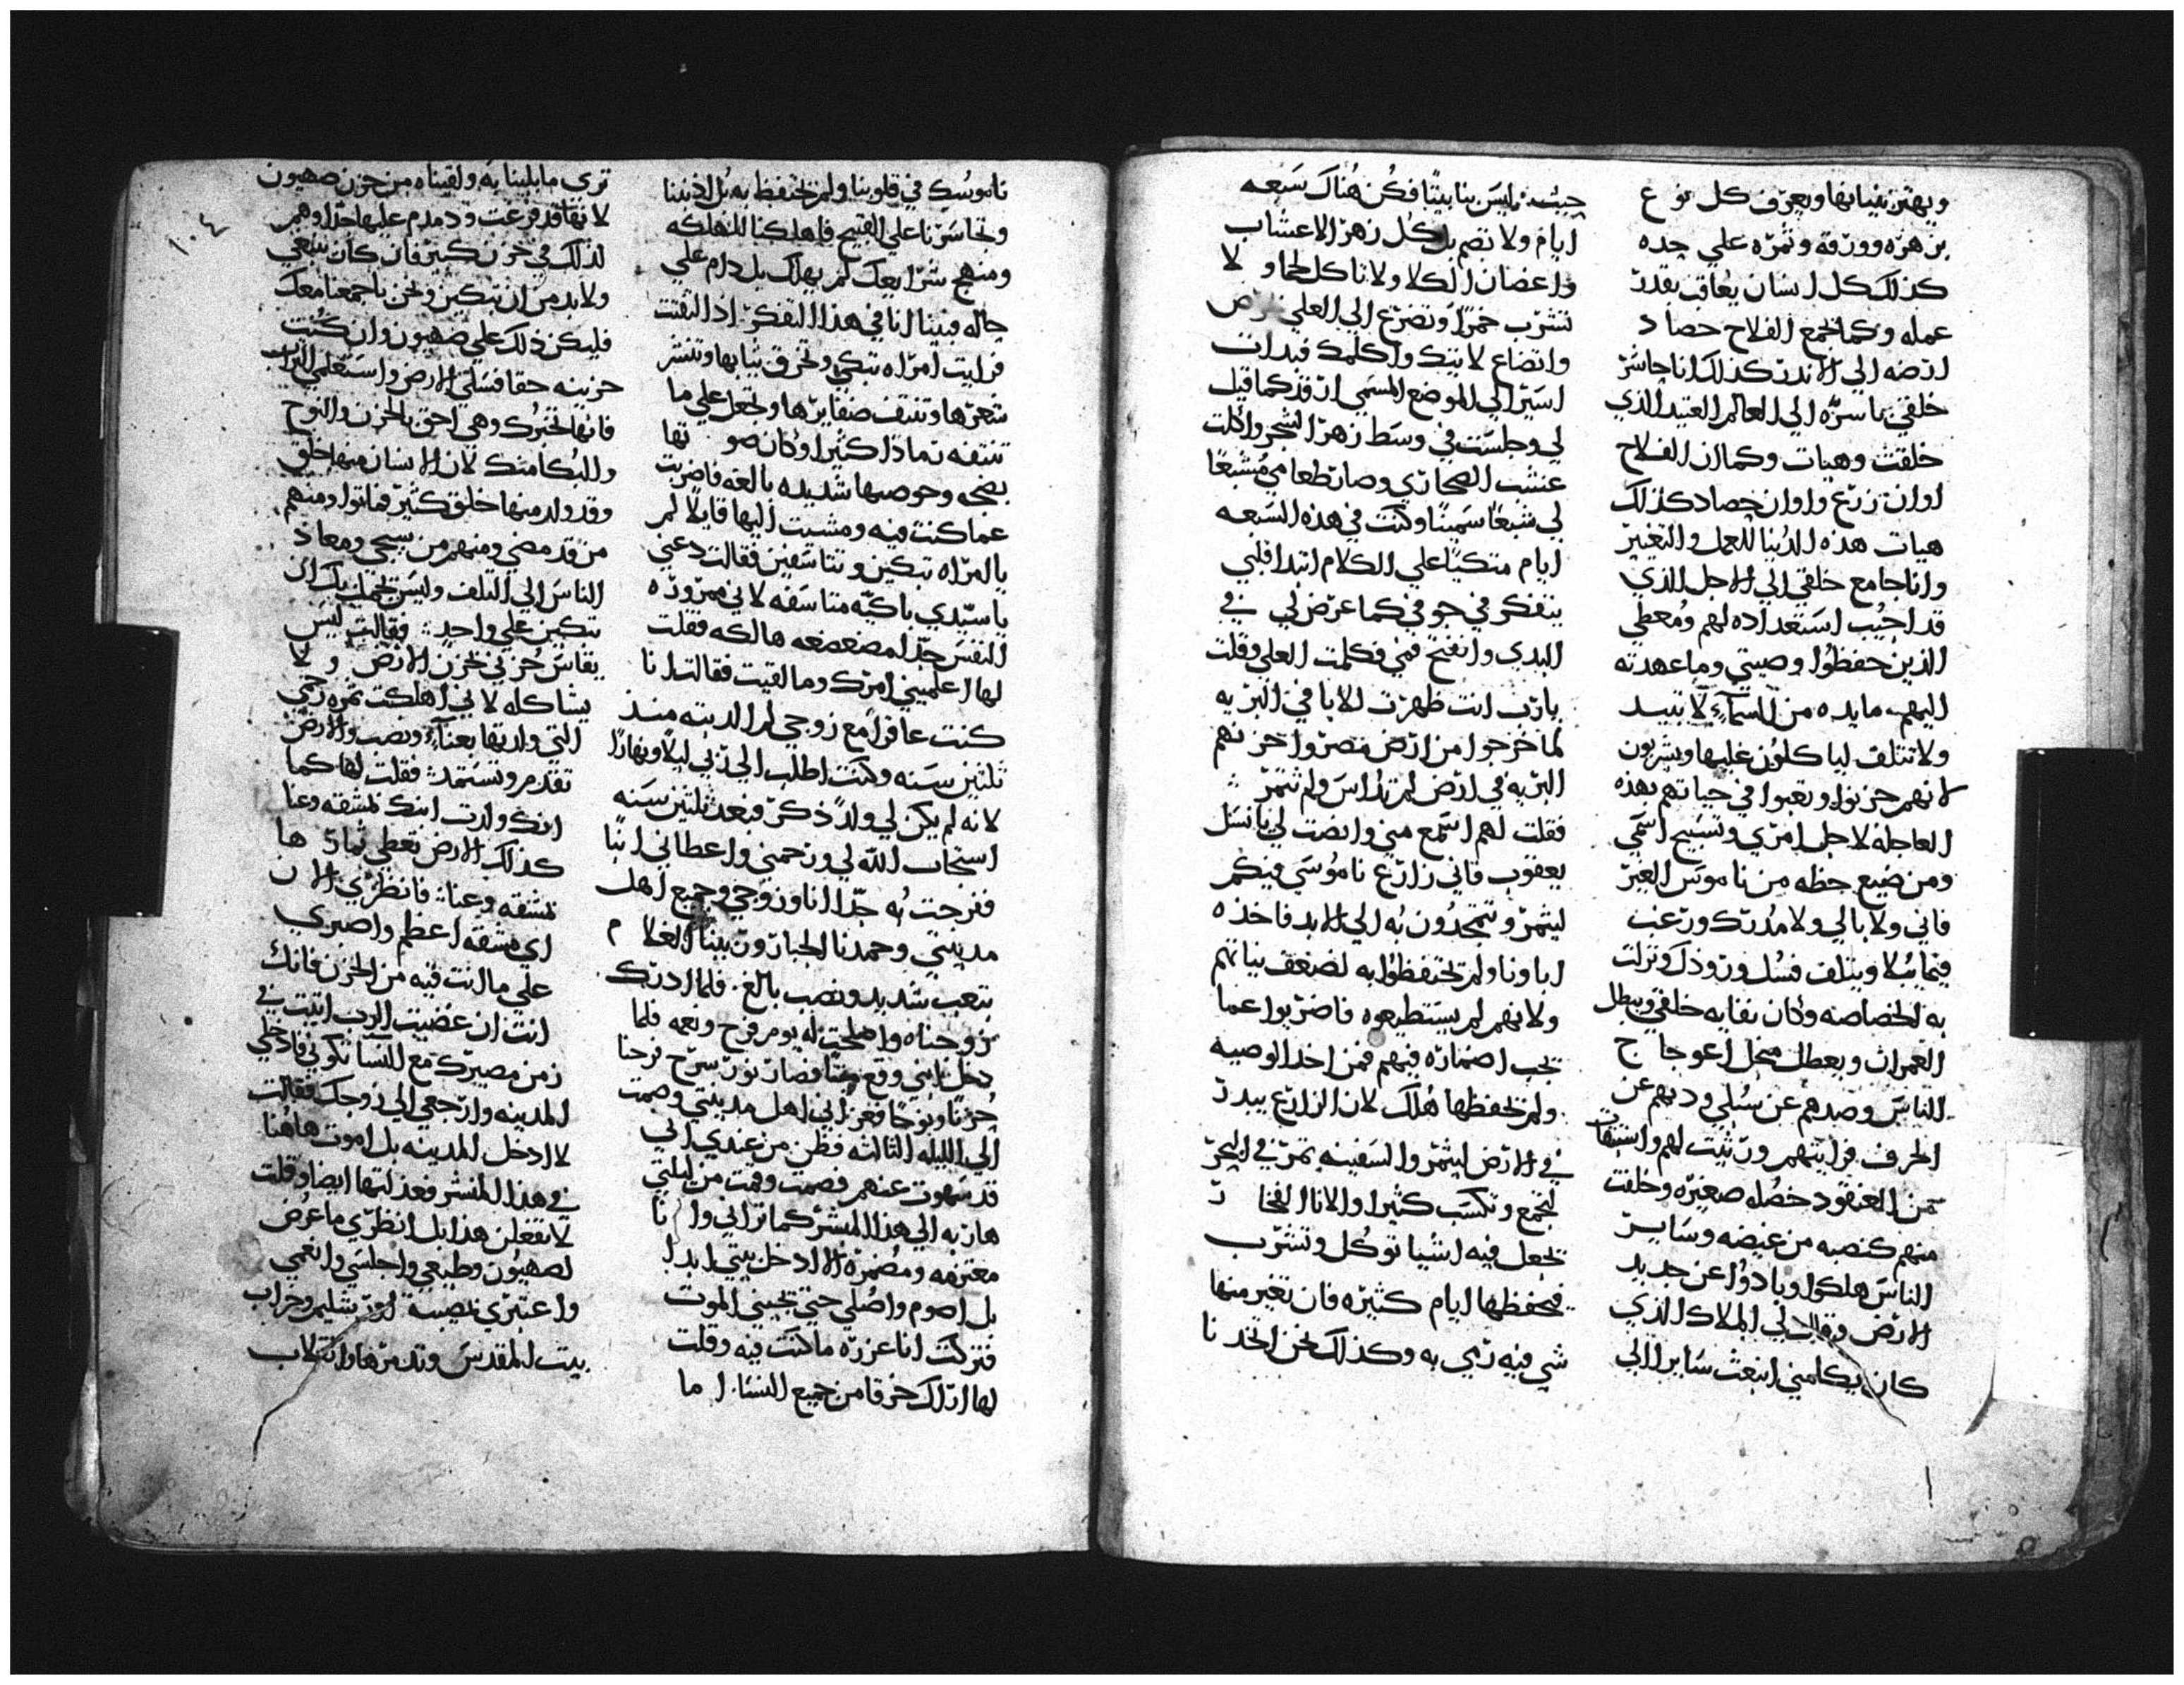 ويهتز بنباتها ويعرف كل نوع
بزهره وورقه وثمره علي حده
كذلك كل انسان يعاقب بقدر
عمله وكما يجمع الفلاح حصاد
ارضه الي الاندر كذلك انا حاشر
خلقي باسره الي العالم العتيد الذي
خلقت وهيات وكما ان الفلاح
اوان زرع واوان حصاد كذلك
هيات هذه الدنيا للعمل والتغيير
وانا جامع خلقي الي الاجل الذي
قد اجيب استعداده لهم ومعطي
الذين حفظوا وصيتي وما عهدته
اليهم مايده من السماء لا تبيد
ولا تتلف لياكلون عليها ويشربون
لانهم حزنوا وتعبوا في حياتهم بهذه
العاجله لاجل امري وتسبيح اسمي
ومن ضيع حظه من ناموس العبر
فاني ولا بالي ولا مدرك ورغب
فيما يبلا ويتلف فسل ورذل ونزلت
به الخصاصه وكان نفايه خلقي ويبطل
العمران ويعطل محل اعوجاج
الناس وصدهم عن سبلي ودبهم عن
الحرف فرايتهم ورثيت لهم واستبقات
من العنقود خصله صغيره وخلقت
منهم كنصبه من غيضه وساير
الناس هلكوا وبادوا عن جديد
الارض وقال لي الملاك الذي
كان يكلمني انبعث سايرا الي
حيث ليس بنا بيتا فكن هناك سبعه
ايام ولا تصم بل كل زهر الاعشاب
واغصان الكلا ولا تاكل لحما ولا
تشرب خمرا وتضرع الي العلي
واتضاع لاتيك واكلمك فبدات
اسير الي الموضع المسمي ارفد كما قيل
لي وجلست في وسط زهر الشجر واكلت
عشب الصحاري وصار طعامي مشبعا
لي شبعا سمينا وكنت في هذه السبعه
ايام متكيا علي الكلام ابتدا قلبي
يتفكر في جوفي كما عرض لي في
البدي وانفتح فمي فكلمت العلي وقلت
يارب انت ظهرت للابا في البريه
لما خرجوا من ارض مصر واخزنهم
البريه في ارض لم تداس ولم تثمر
فقلت لهم استمع مني وانصت لي يا نسل
يعقوب فاني زارع ناموسي فيكم
ليثمر وتتمجدون به الي الابد فاخذه
اباونا ولم تحتفظوا به لضعف نياتهم
ولانهم لم يستطيعوه فاضربوا عما
يجب اضماره فيهم فمن اخذ الوصيه
ولم يحفظها هلك لان الزارع يبدر
في الارض ليثمر والسفينه تمر في البحر
لتجمع وتكسب كثيرا والانا الفخار
يجعل فيه اشيا توكل وتشرب
فيحفظها ايام كثيره فان تغير منها
شي فيه رمي به وكذلك نحن اتخدنا
ناموسك في قلوبنا ولم نحتفظ به بل اذنبنا
وتجاسرنا علي القبيح فاهلكنا للهلكه
ومنهج شرايعك لم يهلك بل دام علي
حاله فبينا انا في هذا التفكر اذ التفتت
فرايت امراه تبكي وتخرق ثيابها وتنشر
شعرها وتنتف ضفايرها وتجعل علي ما
تنتفه رمادا كثيرا وكان صوتها
بضجه وحوصها شديده بالغه فاضربت
عما كنت فيه ومشيت اليها قايلا لم
يا امراه تبكين وتتاسفين فقالت دعني
ياسيدي باكيه متاسفه لاني ممروره
النفس جدا مضعضعه هالكه فقلت
لها اعلميني امرك وما لقيت فقالت انا
كنت عاقرا مع زوجي لم الد ابنه منذ
ثلثين سنه وكنت اطلب الي ربي ليلا ونهارا
لانه لم يكن لي ولد ذكر فبعد ثلثين سنه
استجاب الله لي ورحمني واعطاني ابنا
ففرحت به جدا انا وزوجي وجميع اهل
مدينتي وحمدنا الجبار وربينا الغلام
بتعب شديد ونصب بالغ فلما ادرك
زوجناه واصلحت له يوم فرح ونعمه فلما
دخل ابني وقع ميتا فصار نور سرج فرحنا
حزنا ونوحا فعزاني اهل مدينتي وصمت
الي الليله الثالثه فظن من عندي اني
قد سهوت عنهم فصمت وقمت من ليلتي
هاربه الي هذا المنشر كما تراني وانا
معتزمه ومضمره الا ادخل بيتي ابدا
بل اصوم واصلي حتي يجيني الموت
فتركت انا عزره ما كنت فيه وقلت
لها اراك خرقا من جميع النسا اما
تري ما بلينا به ولقيناه من حزن صهيون
لانها قد فرغت ودمدم عليها جدا وهم
لذلك في حزن كثير فان كان ينبغي
ولابد من ان تبكين ونحن باجمعنا معك
فليكن ذلك علي صهيون وان كنت
حزينه حقا فسلي الارض واستعلمي التراب
فانها تخبرك وهي احق بالحزن والنوح
والبكا منك لان الانسان منها خلق
وقد ولد منها خلق كثير فماتوا ومنهم
من قد مضي ومنهم من يجي ومعاد
الناس الي التلف وليس يحمل بك ان
تبكين علي واحد فقالت ليس
يقاس حزني بحزن الارض ولا
يشاكله لاني اهلكت ثمره رحمي
التي ولدتها بعناء ونصب والارض
تقدم وتستمد فقلت لها كما
انك ولدت ابنك بمشقه وعنا
كذلك الارض تعطي ثمارها
بمشقه وعنا فانظري الان
اي مشقه اعظم واصبري
علي ما انت فيه من الحزن فانك
انت ان غضبت الرب اتيت في
زمن مصيرك مع النسا تكوني فادخلي
المدينه وارجعي الي زوجك فقالت
لا ادخل المدينه بل اموت هاهنا
في هذا المنشر فعذلتها ايضا وقلت
لا تفعلن هذا بل انظري ما عرض
لصهيون وطبعي واجلسي وانعمي
واعتبري نصيبه اورشليم وخراب
بيت المقدس وتدمرها وانتلاب
١٠٤